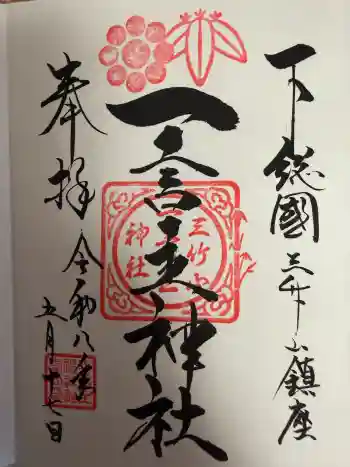 下総國三竹山鎮座
一言主神社
奉拝
令和八年
五月十七日
三竹山
神社